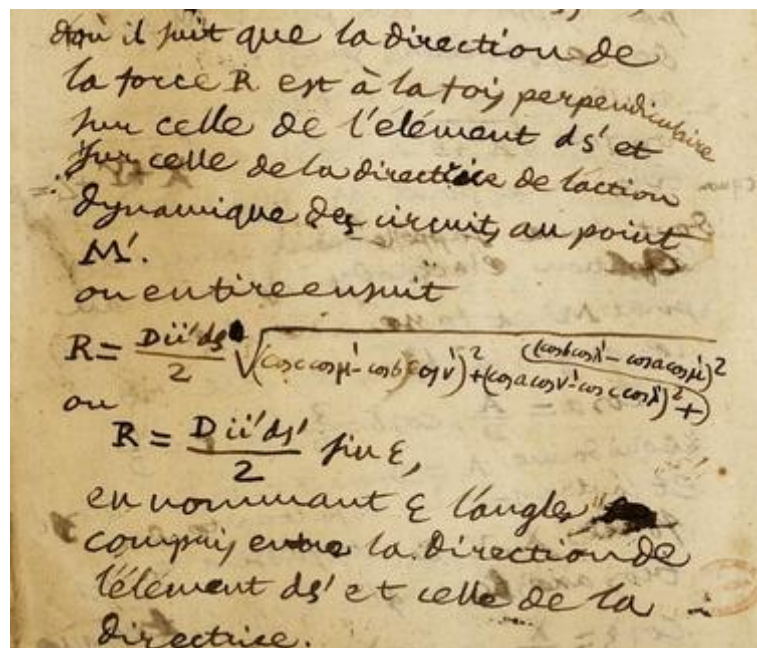 d'où il suit que la direction de
la force R est à la fois perpendiculaire
sur celle de l'élément ds' et
sur celle de la directrice de l'action
dynamique des circuits au point
M'.
on en tire ensuit
R = Dii'ds'/2 √((cos c cos μ' - cos b cos ν')² + (cos a cos ν' - cos c cos λ')² + (cos b cos λ' - cos a cos μ')²)
ou
R = Dii'ds'/2 sin ε,
en nommant ε l'angle
compris entre la direction de
l'élément ds' et celle de la
directrice.